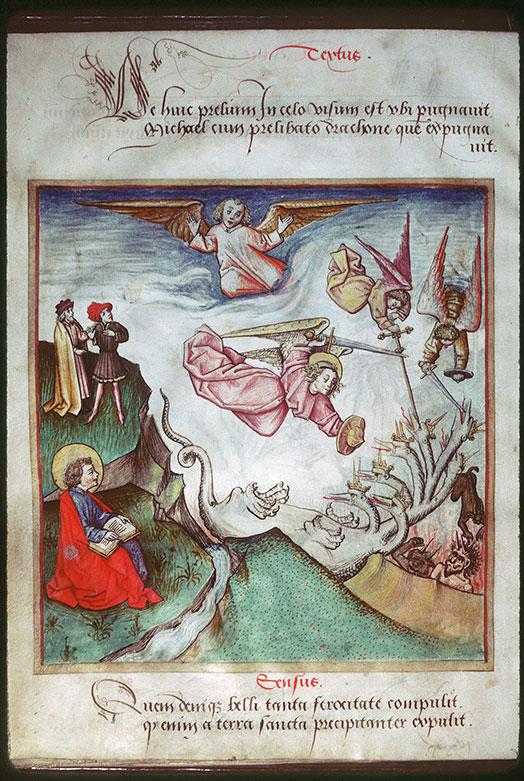 Textus.
We huic prelium In celo visum est vbi pugnauit
Michael cum prelibato drachone quē expugna
uit.
Sensus.
Quem deniqz belli tanta ferocitate compulit.
qz enim a terra sancta precipitanter expulit.